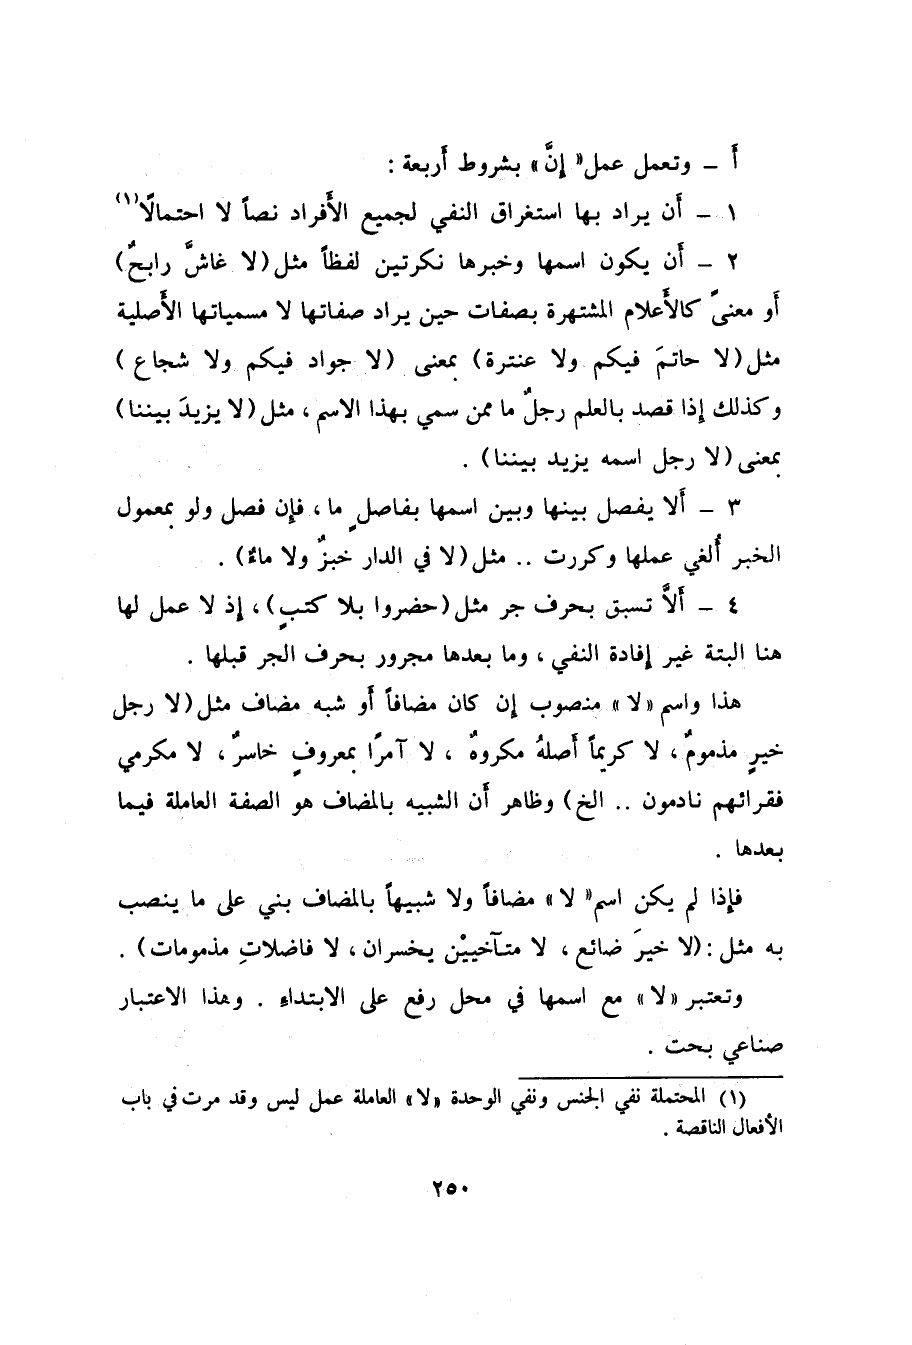 أ – وتعمل عمل « إنَّ » بشروط أربعة :
١ – أن يراد بها استغراق النفي لجميع الأفراد نصاً لا احتمالًا(١)
٢ – أن يكون اسمها وخبرها نكرتين لفظاً مثل (لا غاشَّ رابحٌ)
أو معنىً كالأعلام المشتهرة بصفات حين يراد صفاتها لا مسمياتها الأصلية
مثل (لا حاتمَ فيكم ولا عنترة) بمعنى (لا جواد فيكم ولا شجاع )
وكذلك إذا قصد بالعلم رجلٌ ما ممن سمي بهذا الاسم ، مثل (لا يزيدَ بيننا)
بمعنى (لا رجل اسمه يزيد بيننا) .
٣ – ألا يفصل بينها وبين اسمها بفاصلٍ ما ، فإن فصل ولو بمعمول
الخبر أُلغي عملها وكررت .. مثل (لا في الدار خبزٌ ولا ماءٌ) .
٤ – ألاَّ تسبق بحرف جر مثل (حضروا بلا كتبٍ) ، إذ لا عمل لها
هنا البتة غير إفادة النفي ، وما بعدها مجرور بحرف الجر قبلها .
هذا واسم « لا » منصوب إن كان مضافاً أو شبه مضاف مثل (لا رجل
خيرٍ مذمومٌ ، لا كريماً أصلهُ مكروهٌ ، لا آمرًا بمعروفٍ خاسرٌ ، لا مكرمي
فقرائهم نادمون .. الخ) وظاهر أن الشبيه بالمضاف هو الصفة العاملة فيما
بعدها .
فإذا لم يكن اسم « لا » مضافاً ولا شبيهاً بالمضاف بني على ما ينصب
به مثل : (لا خيرَ ضائع ، لا متآخييْن يخسران ، لا فاضلاتِ مذمومات) .
وتعتبر « لا » مع اسمها في محل رفع على الابتداء . وهذا الاعتبار
صناعي بحت .
(١) المحتملة نفي الجنس ونفي الوحدة « لا » العاملة عمل ليس وقد مرت في باب
الأفعال الناقصة .
٢٥٠